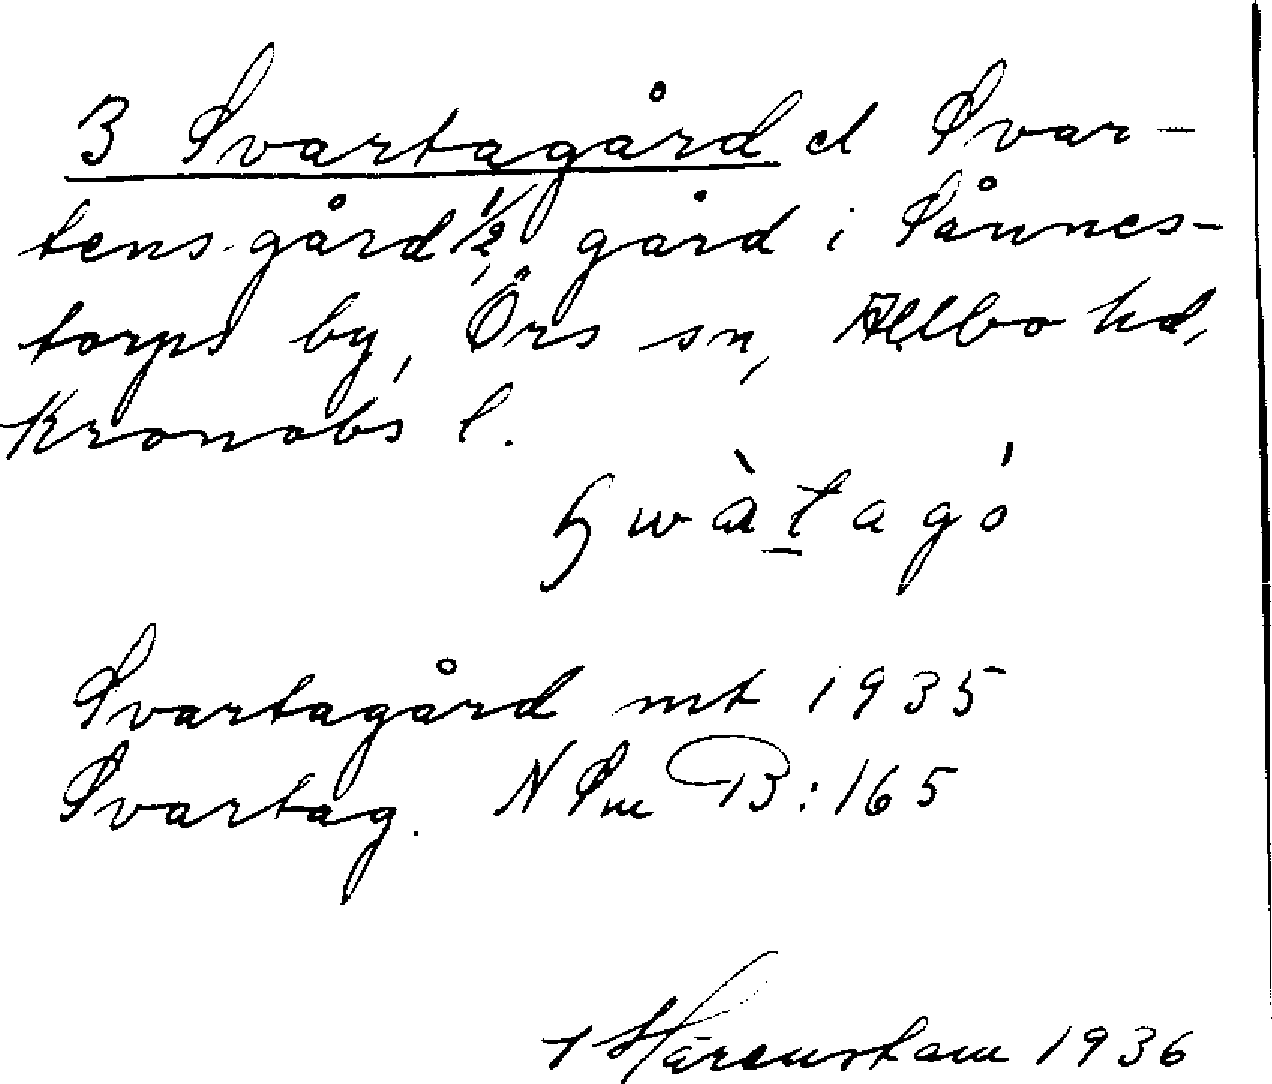 3 Svartagård el Svar-
tens gård 1/2 gård i Sånnes-
torps by, Örs sn, Allbo hd,
Kronobs l.
swàtagó
Svartagård mt 1935
Svartag. N Sm B:165
Härenstam 1936